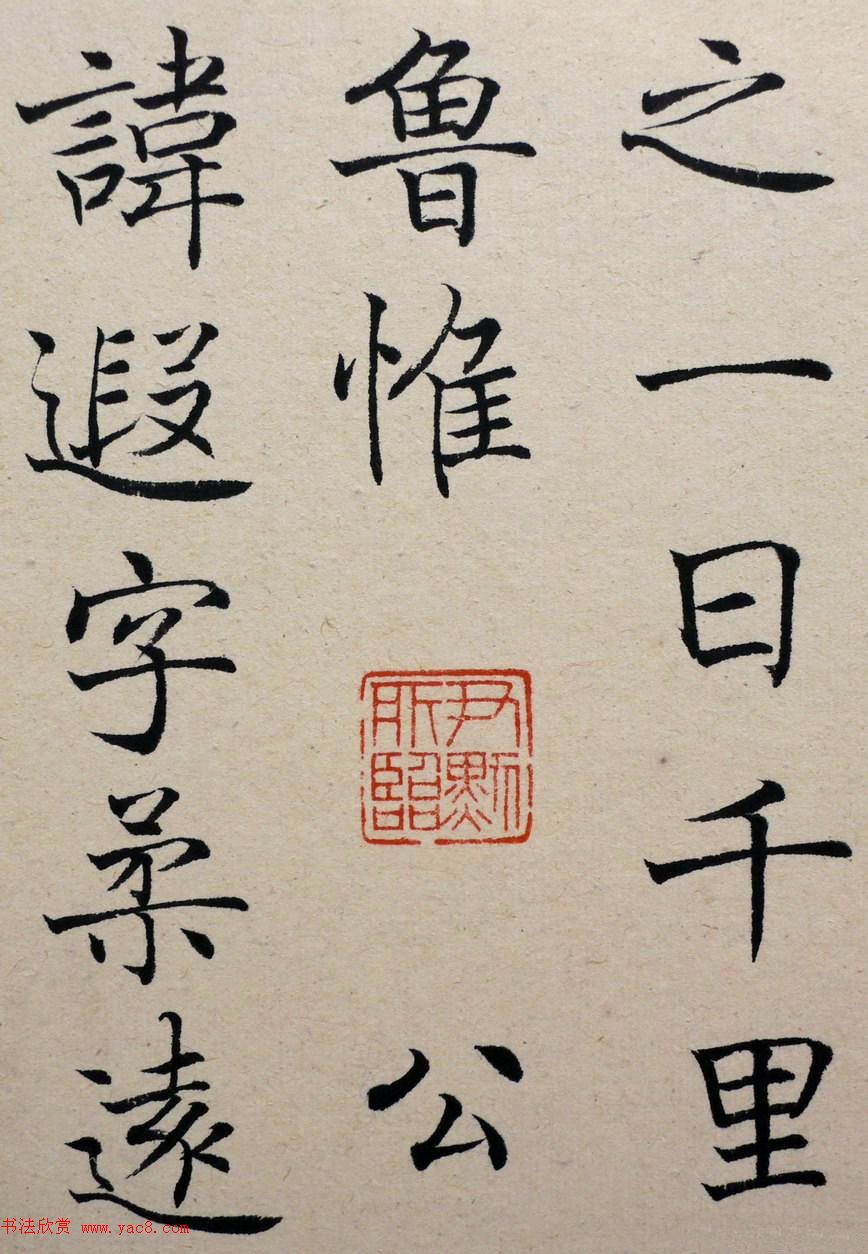 之一日千里
魯惟
公
諱遐字柔遠
尹默
所臨
书法欣赏 www.yac8.com